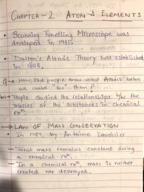 CHAPTER-2 ATOM & ELEMENTS
Scanning Tunelling Microscope was
developed in 1981
Dalton's Atomic Theory was established
in 1808.
people knew about Atoms before
we could "See" them?
People studied the relationships b/w the
masses of the substances in chemical
rxn.
LAW OF MASS CONSERVATION
in 1789, by Antoine Lavoisier
Total mass remains constant during
a chemical rxn.
In a chemical rxn, mass is neither
created nor destroyed.